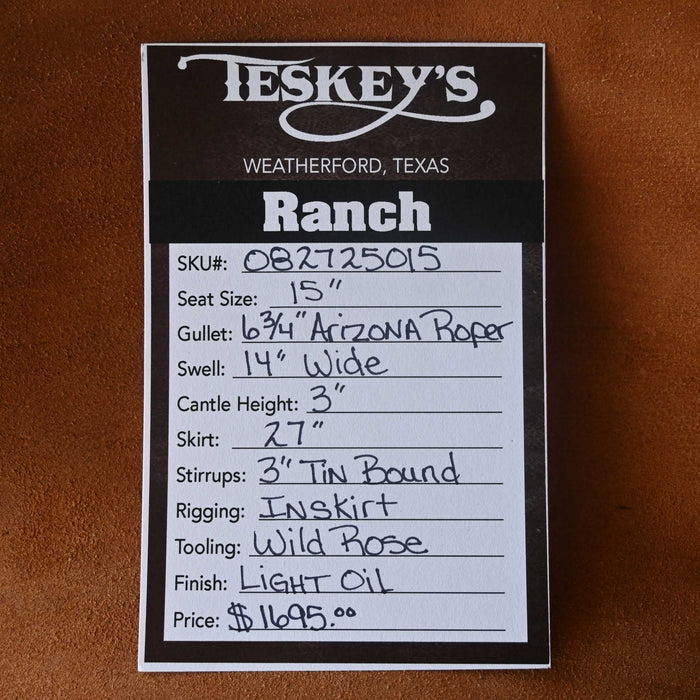 TESKEY'S
WEATHERFORD, TEXAS
Ranch
SKU#: 082725015
Seat Size: 15"
Gullet: 6 3/4" ARIZONA Roper
Swell: 14" Wide
Cantle Height: 3"
Skirt: 27"
Stirrups: 3" TIN Bound
Rigging: INSkirt
Tooling: Wild Rose
Finish: LIGHT OIL
Price: $1695.00